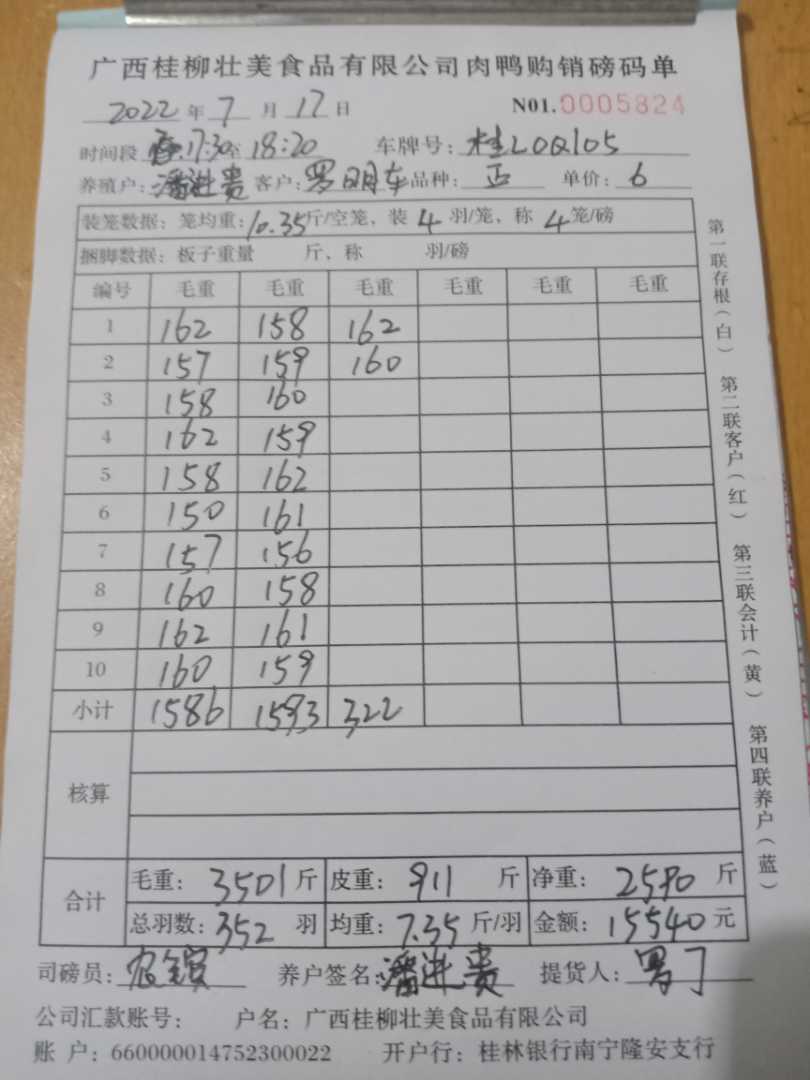 广西桂柳壮美食品有限公司肉鸭购销磅码单
2022 年 7 月 17 日 N01.0005824
时间段 17:30至 18:20 车牌号: 桂L0Q105
养殖户: 潘进贵 客户: 罗明车 品种: 正 单价: 6
装笼数据: 笼均重: 10.35斤/空笼、装 4 羽/笼、称 4 笼/磅
捆脚数据: 板子重量 斤、称 羽/磅
编号 毛重 毛重 毛重 毛重 毛重 毛重
1 162 158 162
2 157 159 160
3 158 160
4 162 159
5 158 162
6 150 161
7 157 156
8 160 158
9 162 161
10 160 159
小计 1586 1593 322
核算
合计 毛重: 3501 斤 皮重: 911 斤 净重: 2590 斤
总羽数: 352 羽 均重: 7.35 斤/羽 金额: 15540 元
司磅员: 养户签名: 潘进贵 提货人: 罗丁
公司汇款账号: 户名: 广西桂柳壮美食品有限公司
账 户: 660000014752300022 开户行: 桂林银行南宁隆安支行
第一联存根(白) 第二联客户(红) 第三联会计(黄) 第四联养户(蓝)